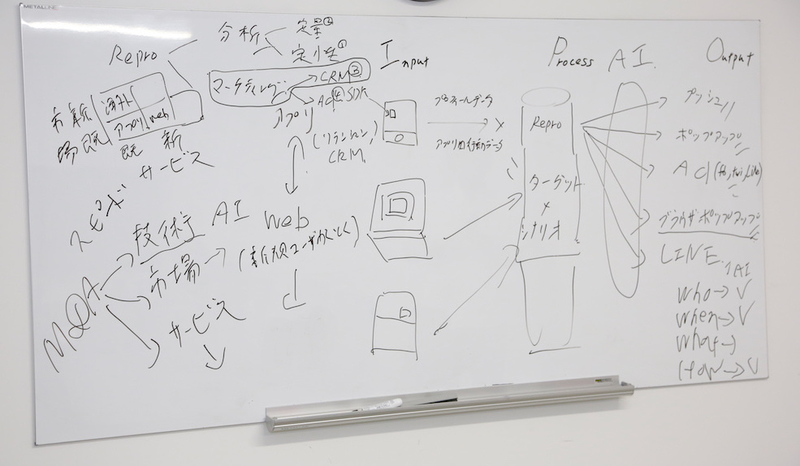 Repro
分析
定量②
定性①
マーケティング
CRM③
AD④SDK
アプリ
(リテンション,
CRM)
市場
新
既
海外
アプリ
web
既
新
サービス
スピード
M&A
技術 AI
市場
サービス
web
(新規ユーザかくとく)
Input
プロフィールデータ
アプリ内行動データ
Process
Repro
ターゲット
×
シナリオ
AI
Output
プッシュ
ポップアップ
Ad (fb, twi, Line)
ブラウザポップアップ
LINE
AI
Who→V
When→V
What→
How→V